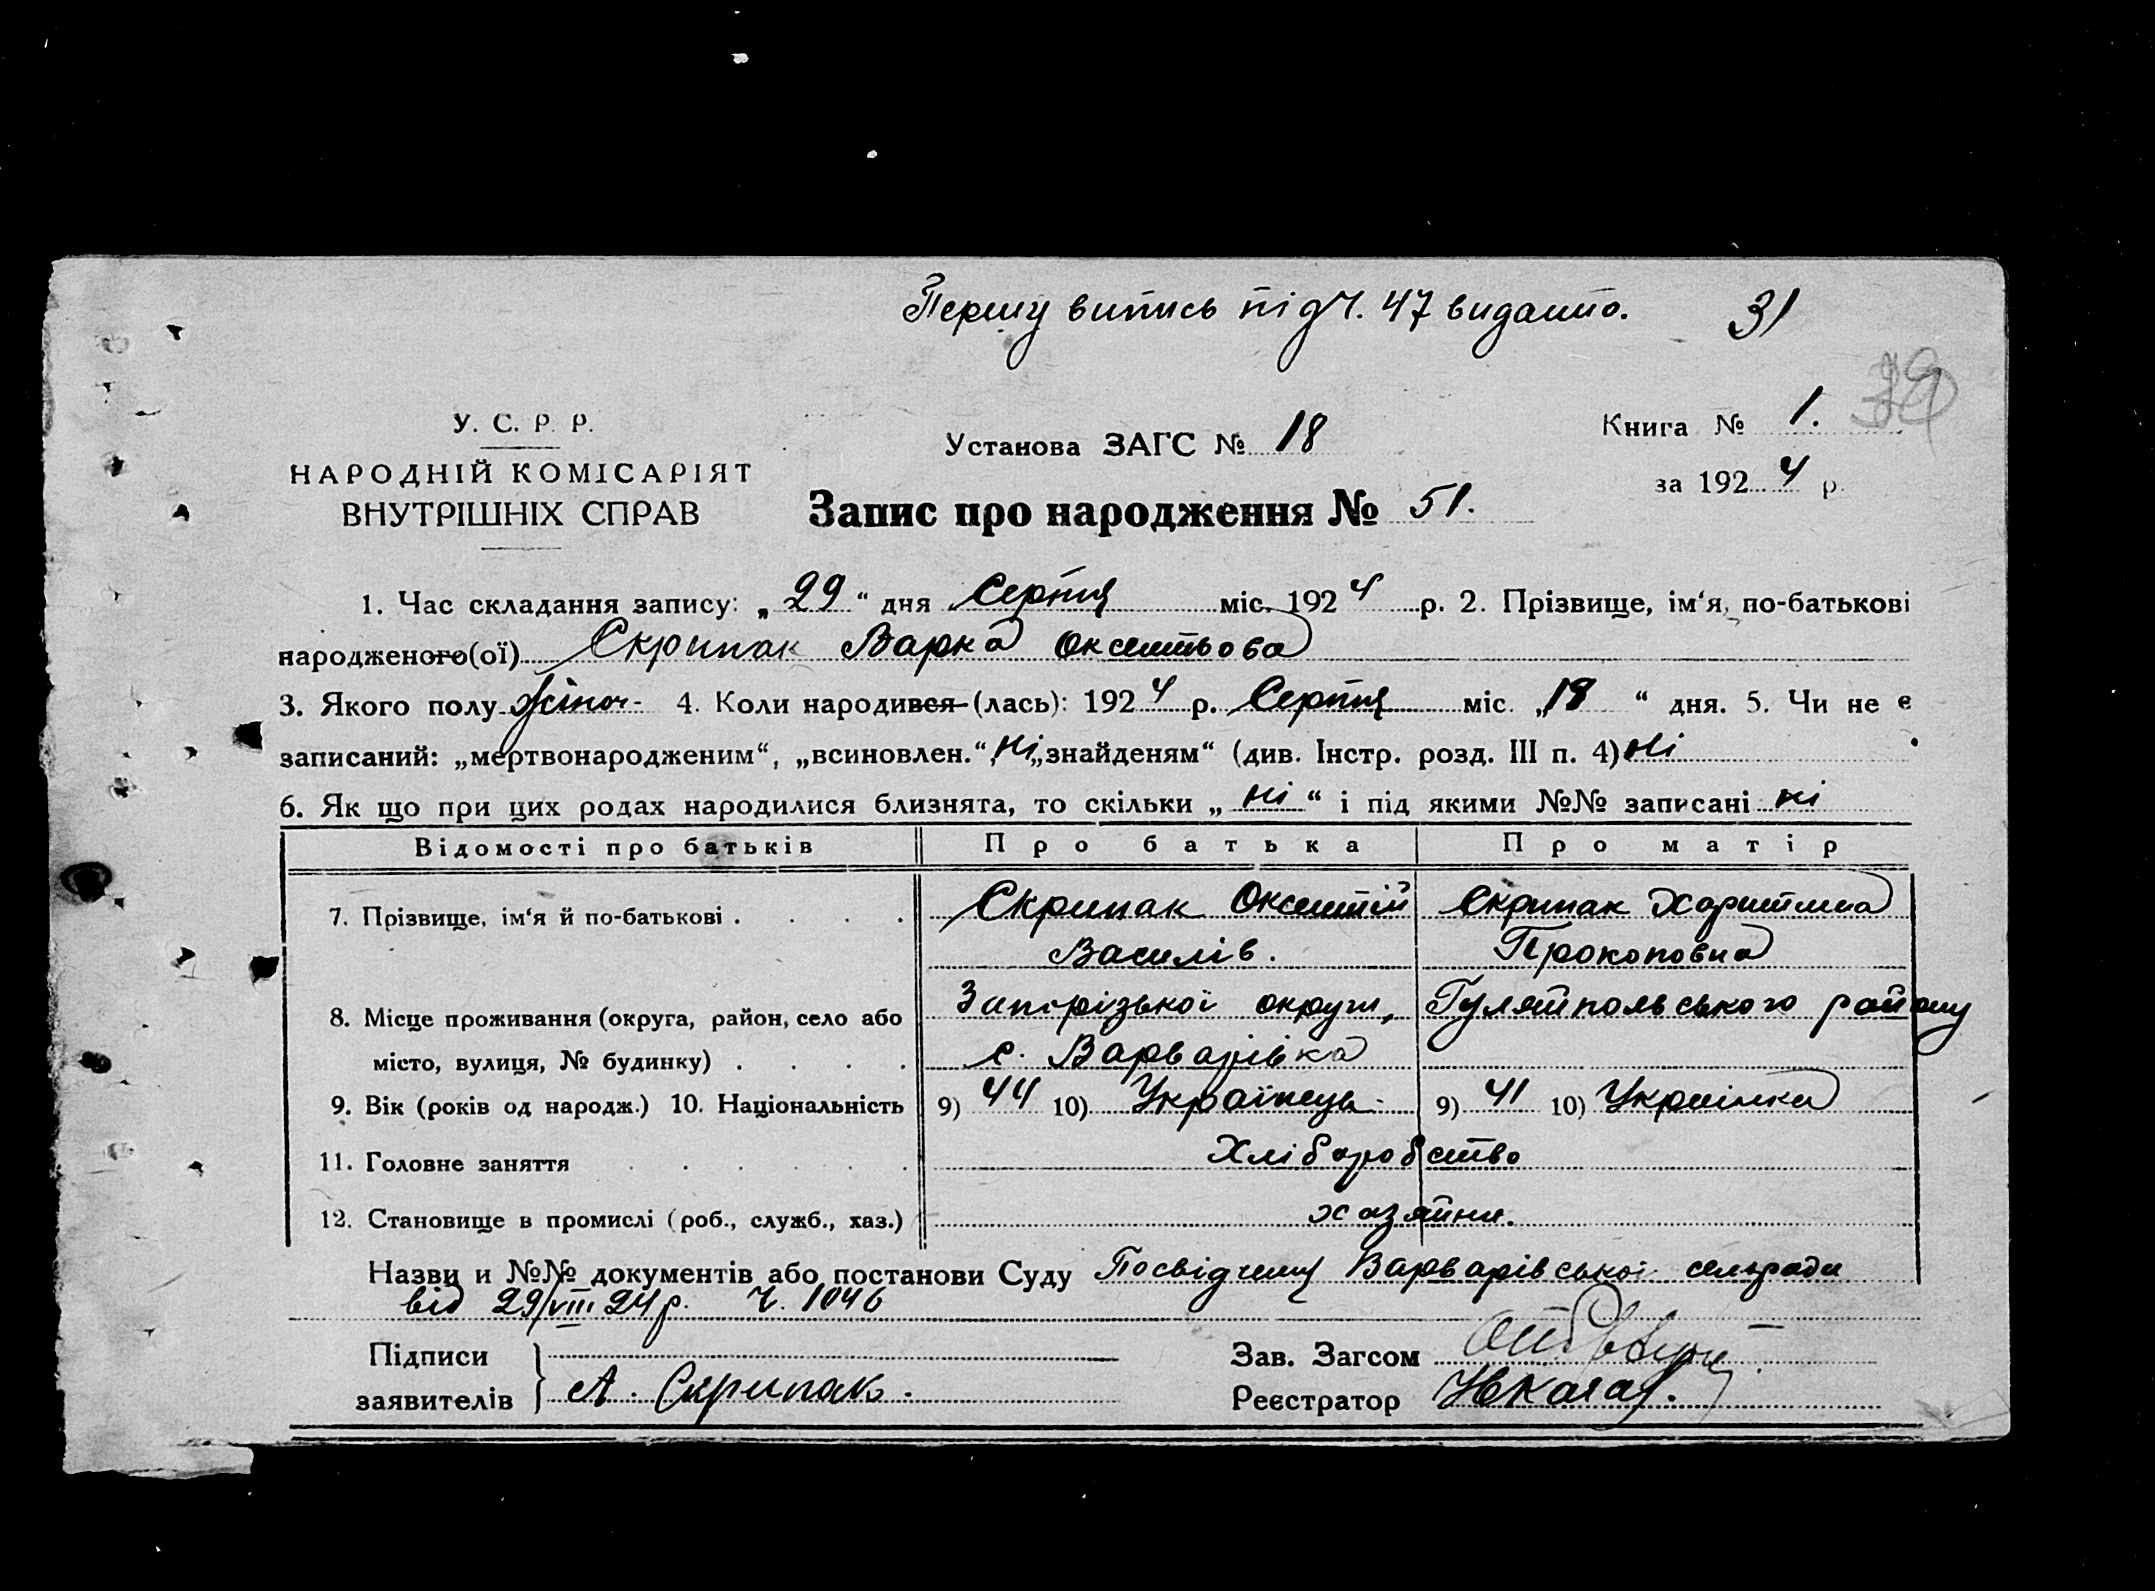 Першу випись під Ч. 47 видано. 31
39
У. С. Р. Р.
НАРОДНІЙ КОМІСАРІЯТ
ВНУТРІШНІХ СПРАВ
Установа ЗАГС № 18
Книга № 1.
за 1924 р.
Запис про народження № 51.
1. Час складання запису: „29“ дня Серпня міс. 1924 р. 2. Прізвище, ім‘я, по-батькові
народженого(ої) Скрипак Варка Оксентьова
3. Якого полу жіноч- 4. Коли народився (лась): 1924 р. Серпня міс. „18“ дня. 5. Чи не є
записаний: „мертвонародженим“, „всиновлен.“, ні „знайденям“ (див. Інстр. розд. III п. 4) ні
6. Як що при цих родах народилися близнята, то скільки „ні“ і під якими №№ записані ні
Відомості про батьків Про батька Про матір
7. Прізвище, ім‘я й по-батькові . . . . Скрипак Оксентій Скрипак Христина
Василів. Прокоповна
8. Місце проживання (округа, район, село або Запорізької округи, Гуляйпольського району
місто, вулиця, № будинку) . . . . с. Варварівка
9. Вік (років од народж.) 10. Національність 9) 44 10) Українець 9) 41 10) Українка
11. Головне заняття . . . . . . Хліборобство
12. Становище в промислі (роб., служб., хаз.) хазяйни.
Назви и №№ документів або постанови Суду Посвідчення Варварівської сельради
від 29/VIII 24 р. Ч. 1046
Підписи
заявителів А. Скрипак.
Зав. Загсом
Реєстратор